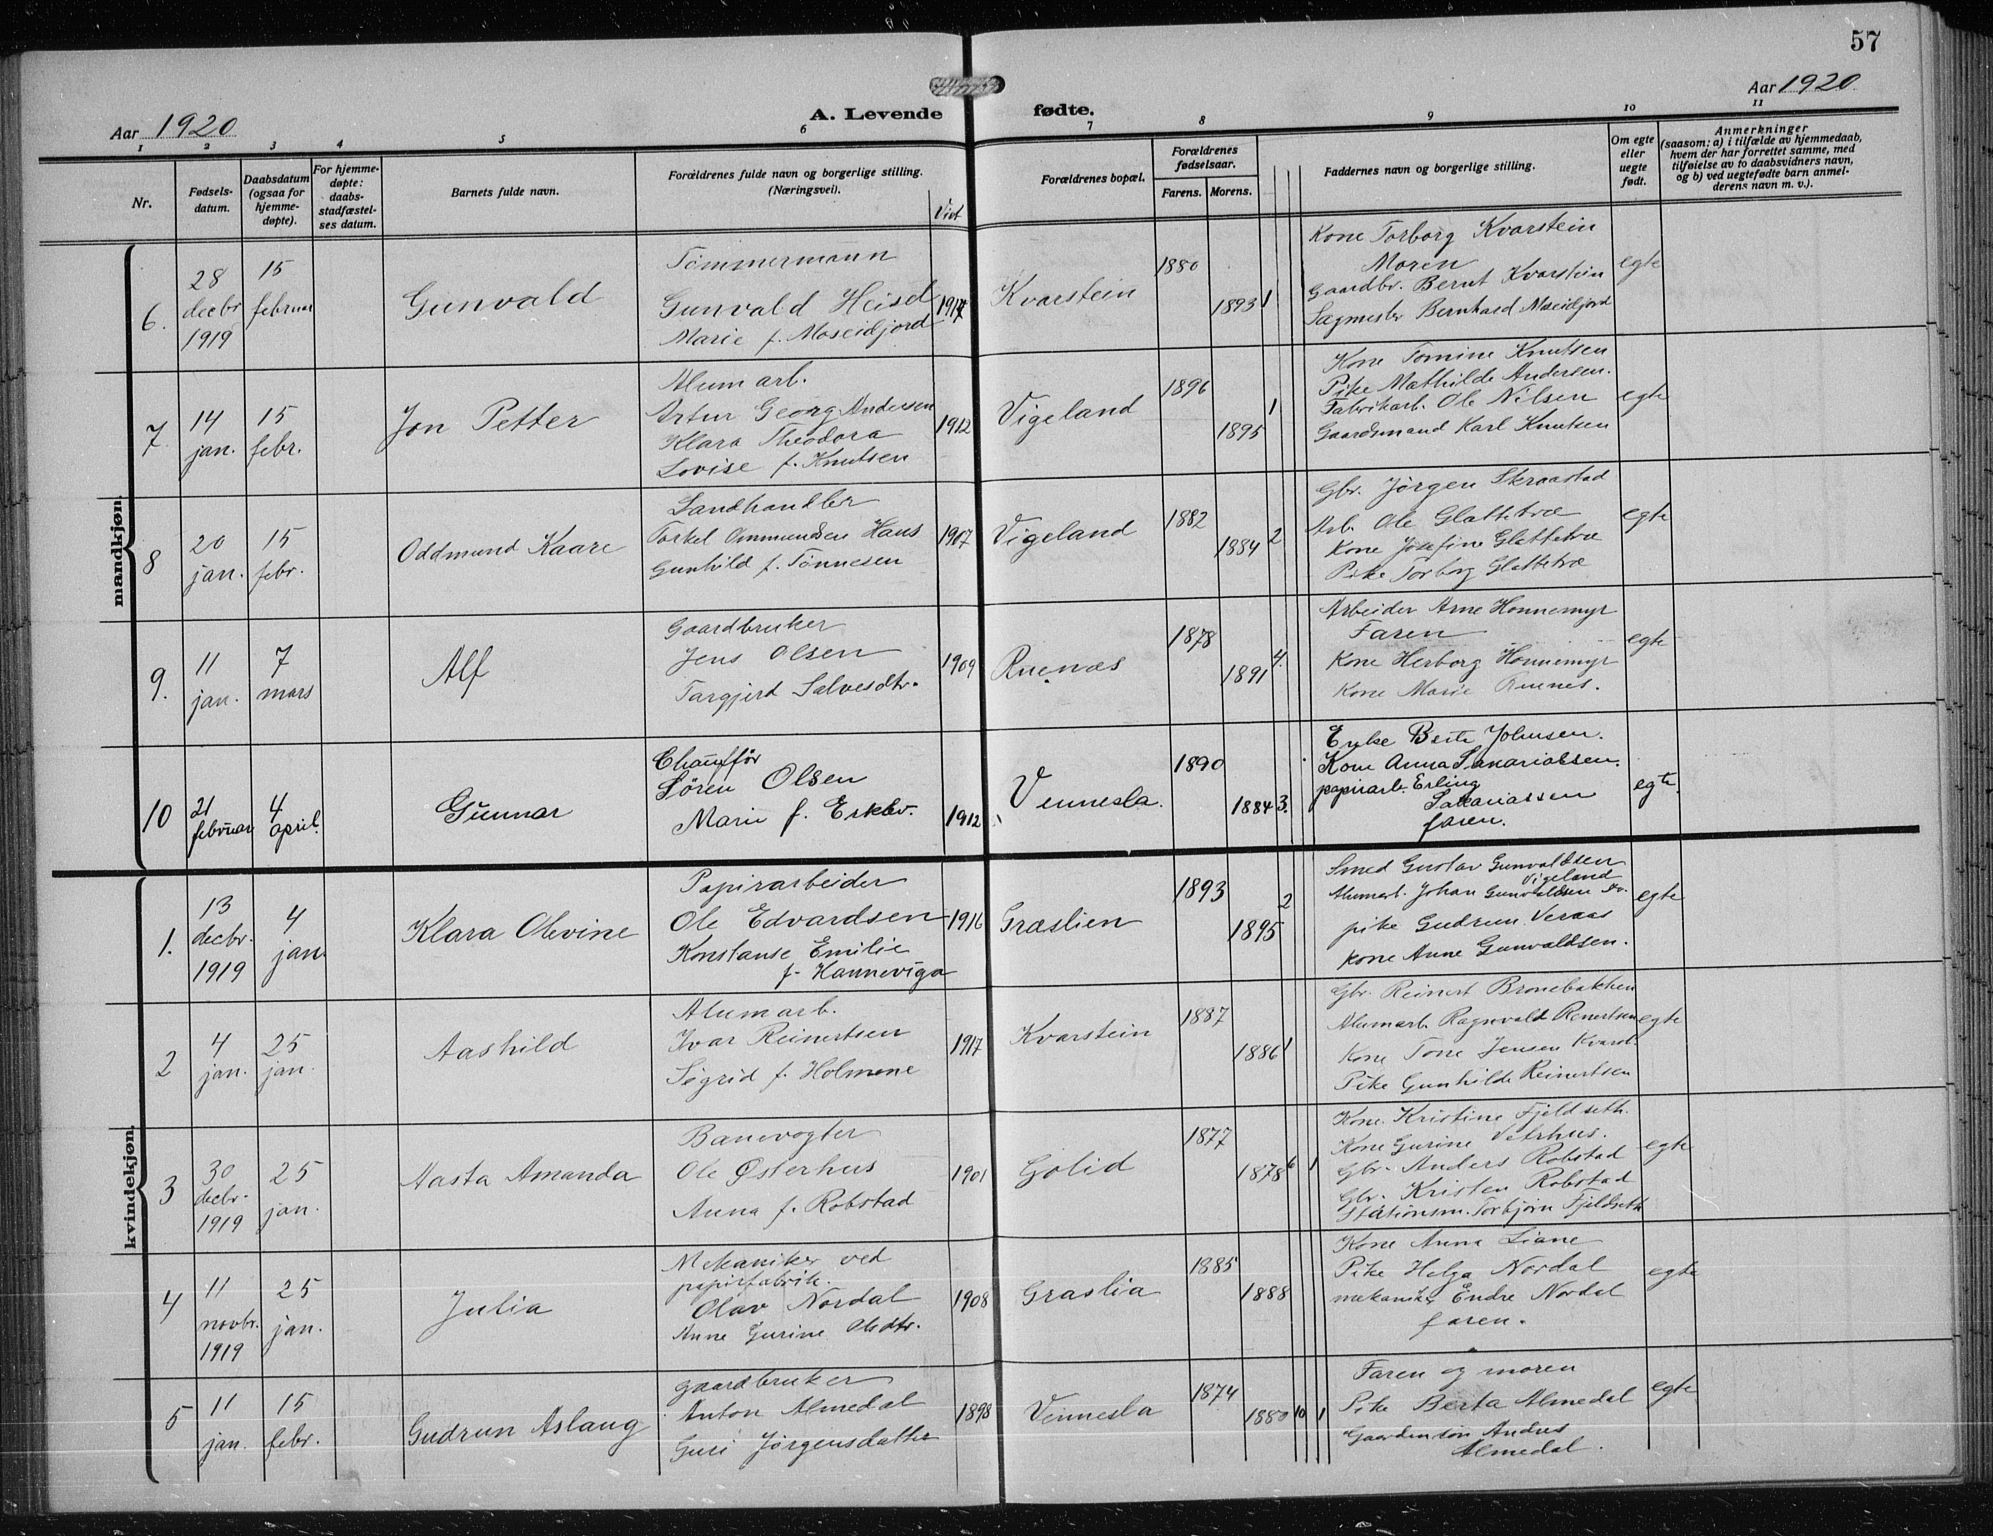 57
Aar 1920
A. Levende fødte.
Aar 1920
1 2 3 4 5 6 7 8 9 10 11
Nr.
Fødsels-
datum.
Daabsdatum
(ogsaa for
hjemme-
døpte).
For hjemme-
døpte:
daabs-
stadfæstel-
ses datum.
Barnets fulde navn.
Forældrenes fulde navn og borgerlige stilling.
(Næringsvei).
Viet
Forældrenes bopæl.
Forældrenes
fødselsaar.
Farens. Morens.
Faddernes navn og borgerlige stilling.
Om egte
eller
uegte
født.
Anmerkninger
(saasom: a) i tilfælde av hjemmedaab,
hvem der har forrettet samme, med
tilføielse av to daabsvidners navn,
og b) ved uegtefødte barn anmel-
derens navn m. v.).
mandkjøn.
6.
28
decbr
1919
15
februar
Gunvald
Tømmermann
Gunvald Heisel
Marie f. Moseidjord
1917
Kvarstein
1880
1893
1
Kone Torborg Kvarstein
Moren
Gaardbr. Bernt Kvarstein
Sagmester Bernhard Moseidjord
egte
7
14
jan.
15
febr.
Jon Petter
Alumarb.
Artur Georg Andersen
Klara Theodora
Lovise f. Knutsen
1912
Vigeland
1896
1895
1
Kone Tomine Knutsen
Pike Mathilde Andersen.
Fabrikarb. Ole Nilsen
Gaardmand Karl Knutsen
egte
8
20
jan.
15
febr.
Oddmund Kaare
Landhandler
Torkel Ommundsen Haus
Gunhild f. Tønnesen
1907
Vigeland
1882
1884
2
Gbr. Jørgen Skraastad
Arb. Ole Glattetræ
Kone Josefine Glattetræ
Pike Torborg Glattetræ
egte
9.
11
jan.
7
mars
Alf
Gaardbruker
Jens Olsen
Targjerd Salvesdtr.
1909
Ruenæs
1878
1891
4.
Arbeider Arne Honnemyr
Faren
Kone Herborg Honnemyr
Kone Marie Ruenes.
egte
10
21
februar
4
april.
Gunnar
Chauffør
Søren Olsen
Marie f.
1912
Vennesla.
1890
1884
3.
Enke Berte Johnsen.
Kone Anna Sakariassen.
papirarb. Erling
Sakariassen
faren.
egte.
kvindekjøn.
1.
13
decbr.
1919
4
jan.
Klara Olevine
Papirarbeider
Ole Edvardsen
Konstanse Emilie
f. Hanneviga
1916
Graslien
1893
1895
2
Smed Gustav Gunvaldsen
Vigeland
Alumarb. Johan Gunvaldsen
pike Gudrun Veraas
kone Anne Gunvaldsen.
egte
2
4
jan.
25
jan.
Aashild
Alumarb.
Ivar Reinertsen
Sigrid f. Holmene
1917
Kvarstein
1887
1886
1
Gbr. Reinert Bronebakken
Alumarb. Ragnvald Renertsen
Kone Tone Jensen Kvarst.
Pike Gunhilde Reinertsen
egte
3
30
decbr.
1919
25
jan.
Aasta Amanda
Banevogter
Ole Østerhus
Anna f. Robstad
1901
Golid
1877
1878
6
1
Kone Kristine Fjeldseth.
Kone Gurine Vetrhus.
Gbr. Anders Robstad
Gbr. Kristen Robstad
Stationsm. Torbjørn Fjeldseth
egte
4
11
novbr.
1919
25
jan.
Julia
Mekaniker ved
papirfabrik.
Olav Nordal
Anne Gurine Olsdtr.
1908
Graslia
1885
1888
Kone Anna Liane
Pike Helga Nordal
mekaniker Endre Nordal
faren.
egte
5
11
jan.
15
febr.
Gudrun Aslaug
gaardbruker
Anton Almedal
Guri Jørgensdatter
1898
Vennesla
1874
1880
10
1
Faren og moren
Pike Berta Almedal
Gaardmsøn Andres
Almedal.
egte